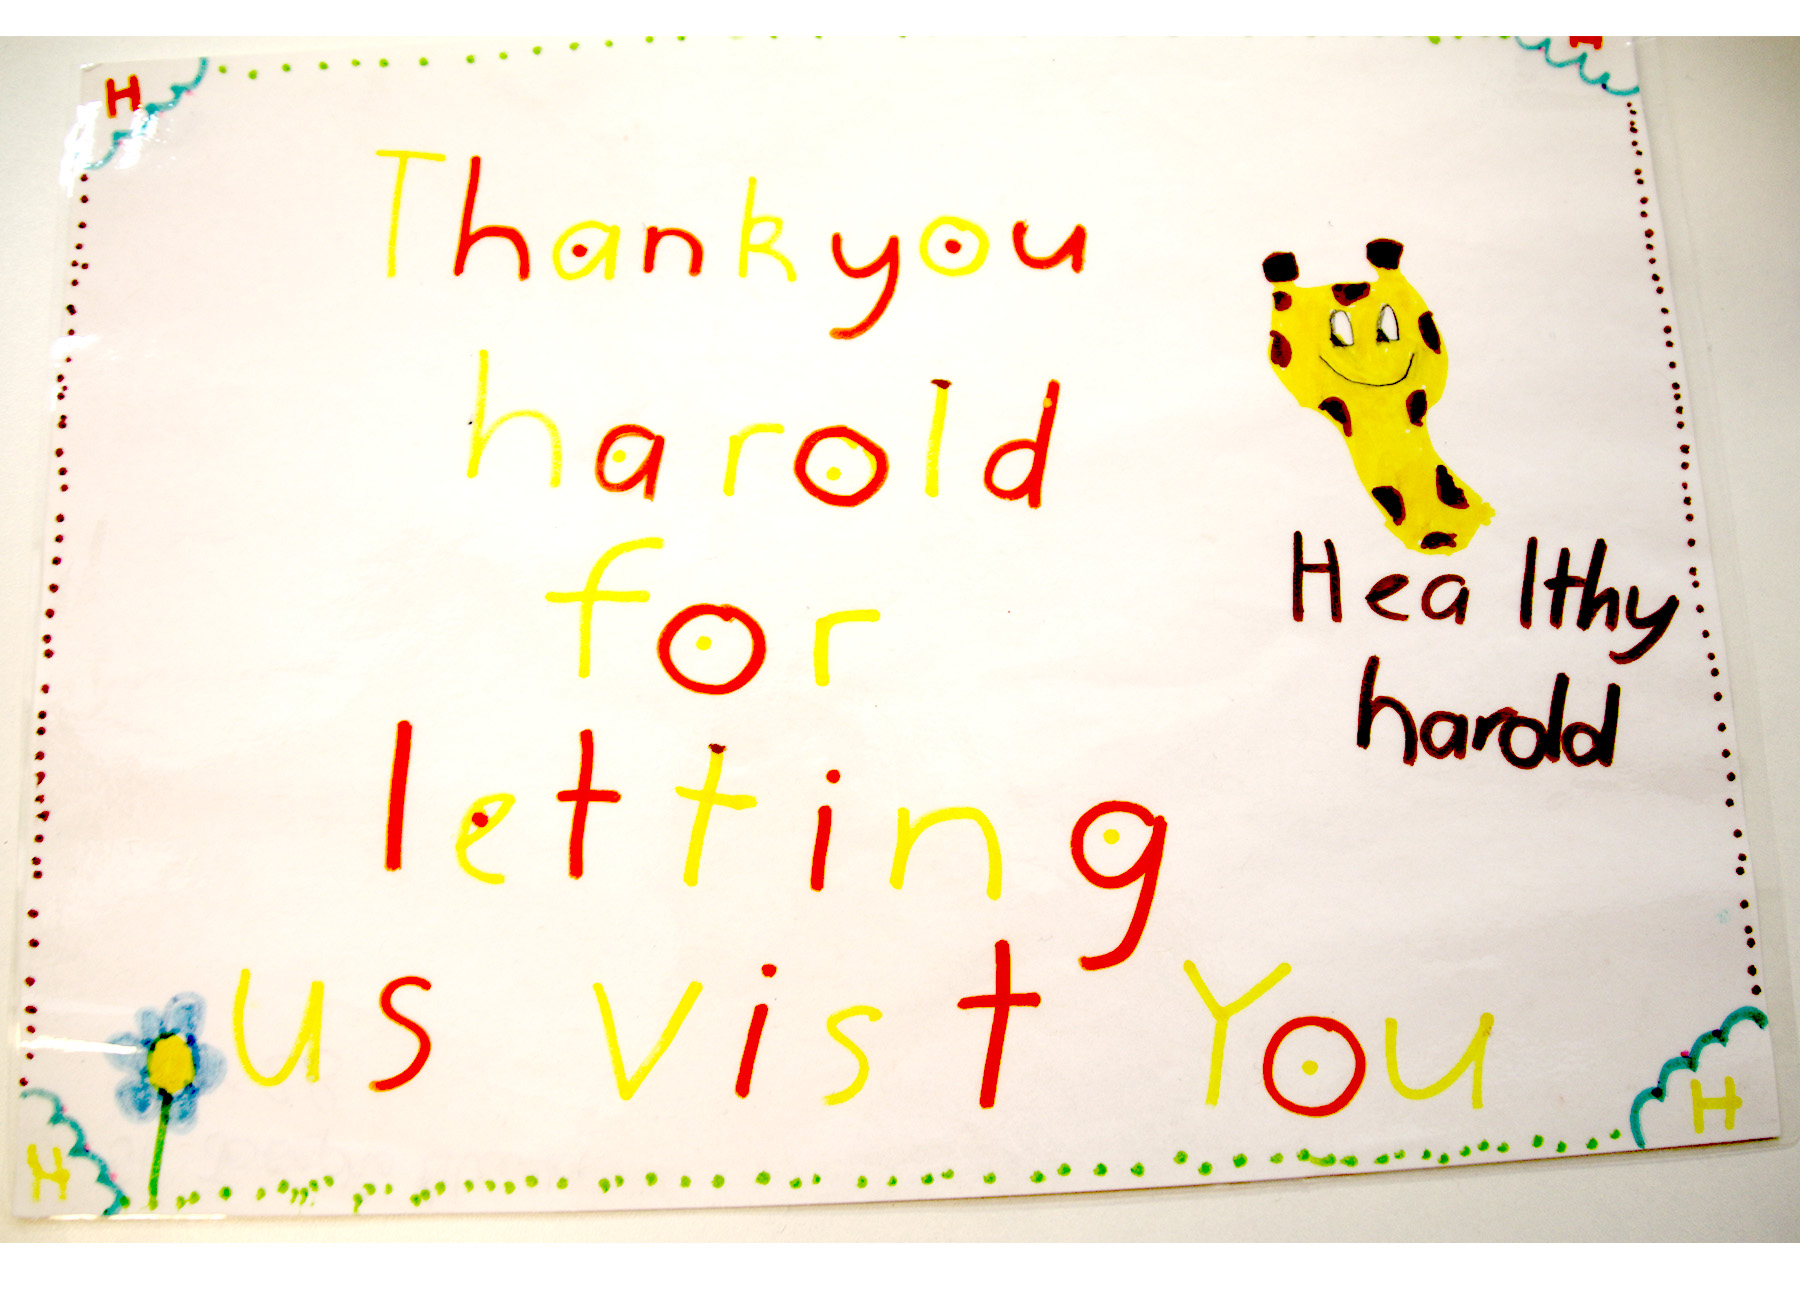 H H
Thankyou
harold
for
letting
us vist You
Healthy
harold
H H